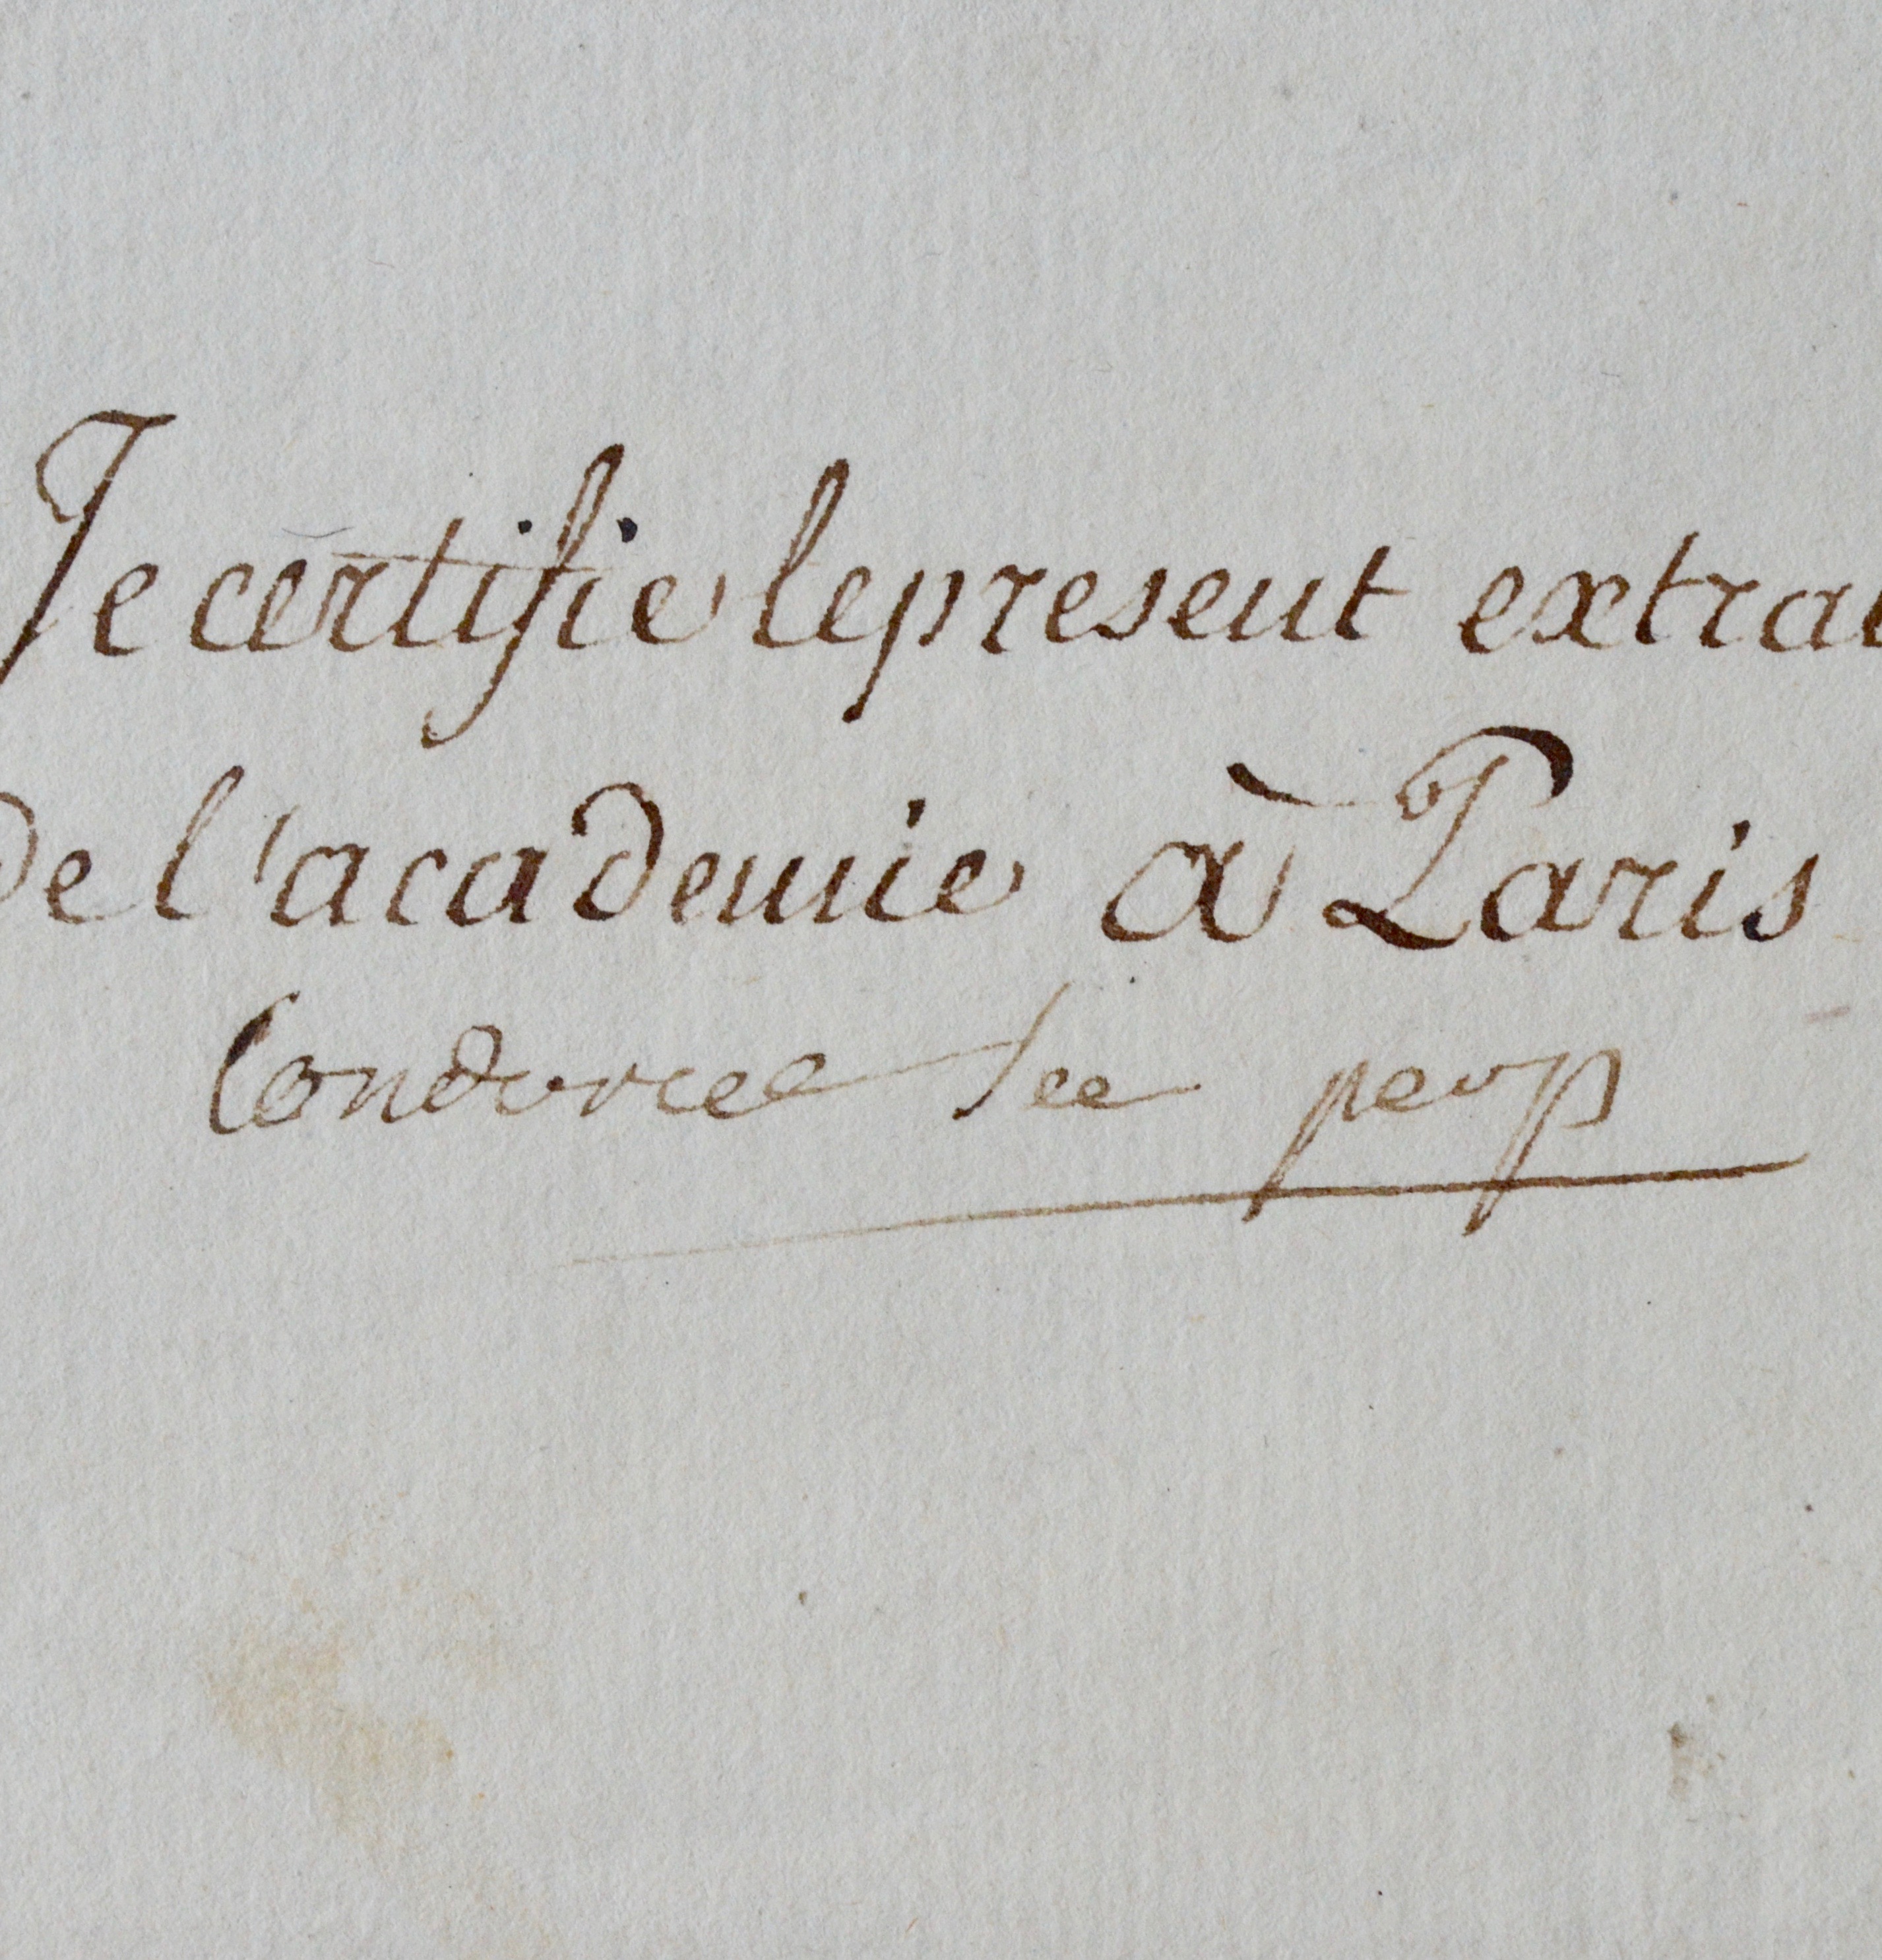 Je certifie le present extrai
de l'academie à Paris
Condorcet sec perp